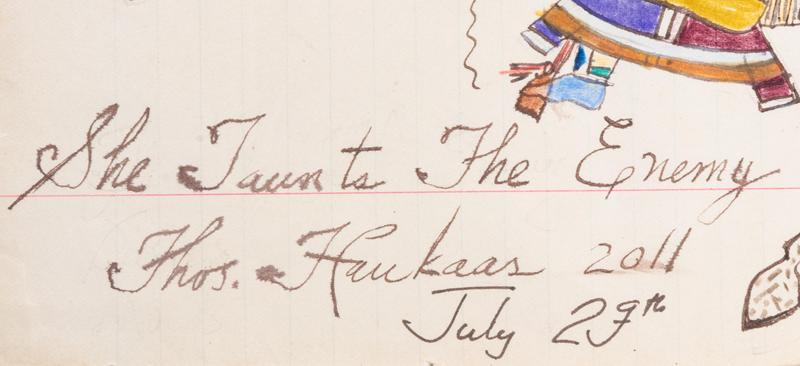 She Taunts The Enemy
Thos. Haukaas 2011
July 29th